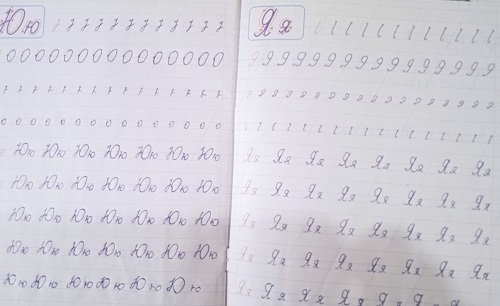 Юю
Юю Юю Юю Юю Юю Юю Юю
Юю Юю Юю Юю Юю Юю Юю
Юю Юю Юю Юю Юю Юю Юю
Юю Юю Юю Юю Юю Юю Юю
Юю Юю Юю Юю Юю Юю
Яя
Яя Яя Яя Яя Яя Яя Яя Яя
Яя Яя Яя Яя Яя Яя Яя Яя
Яя Яя Яя Яя Яя Яя Яя Яя
Яя Яя Яя Яя Яя Яя Яя Яя
Яя Яя Яя Яя Яя Яя Яя Яя